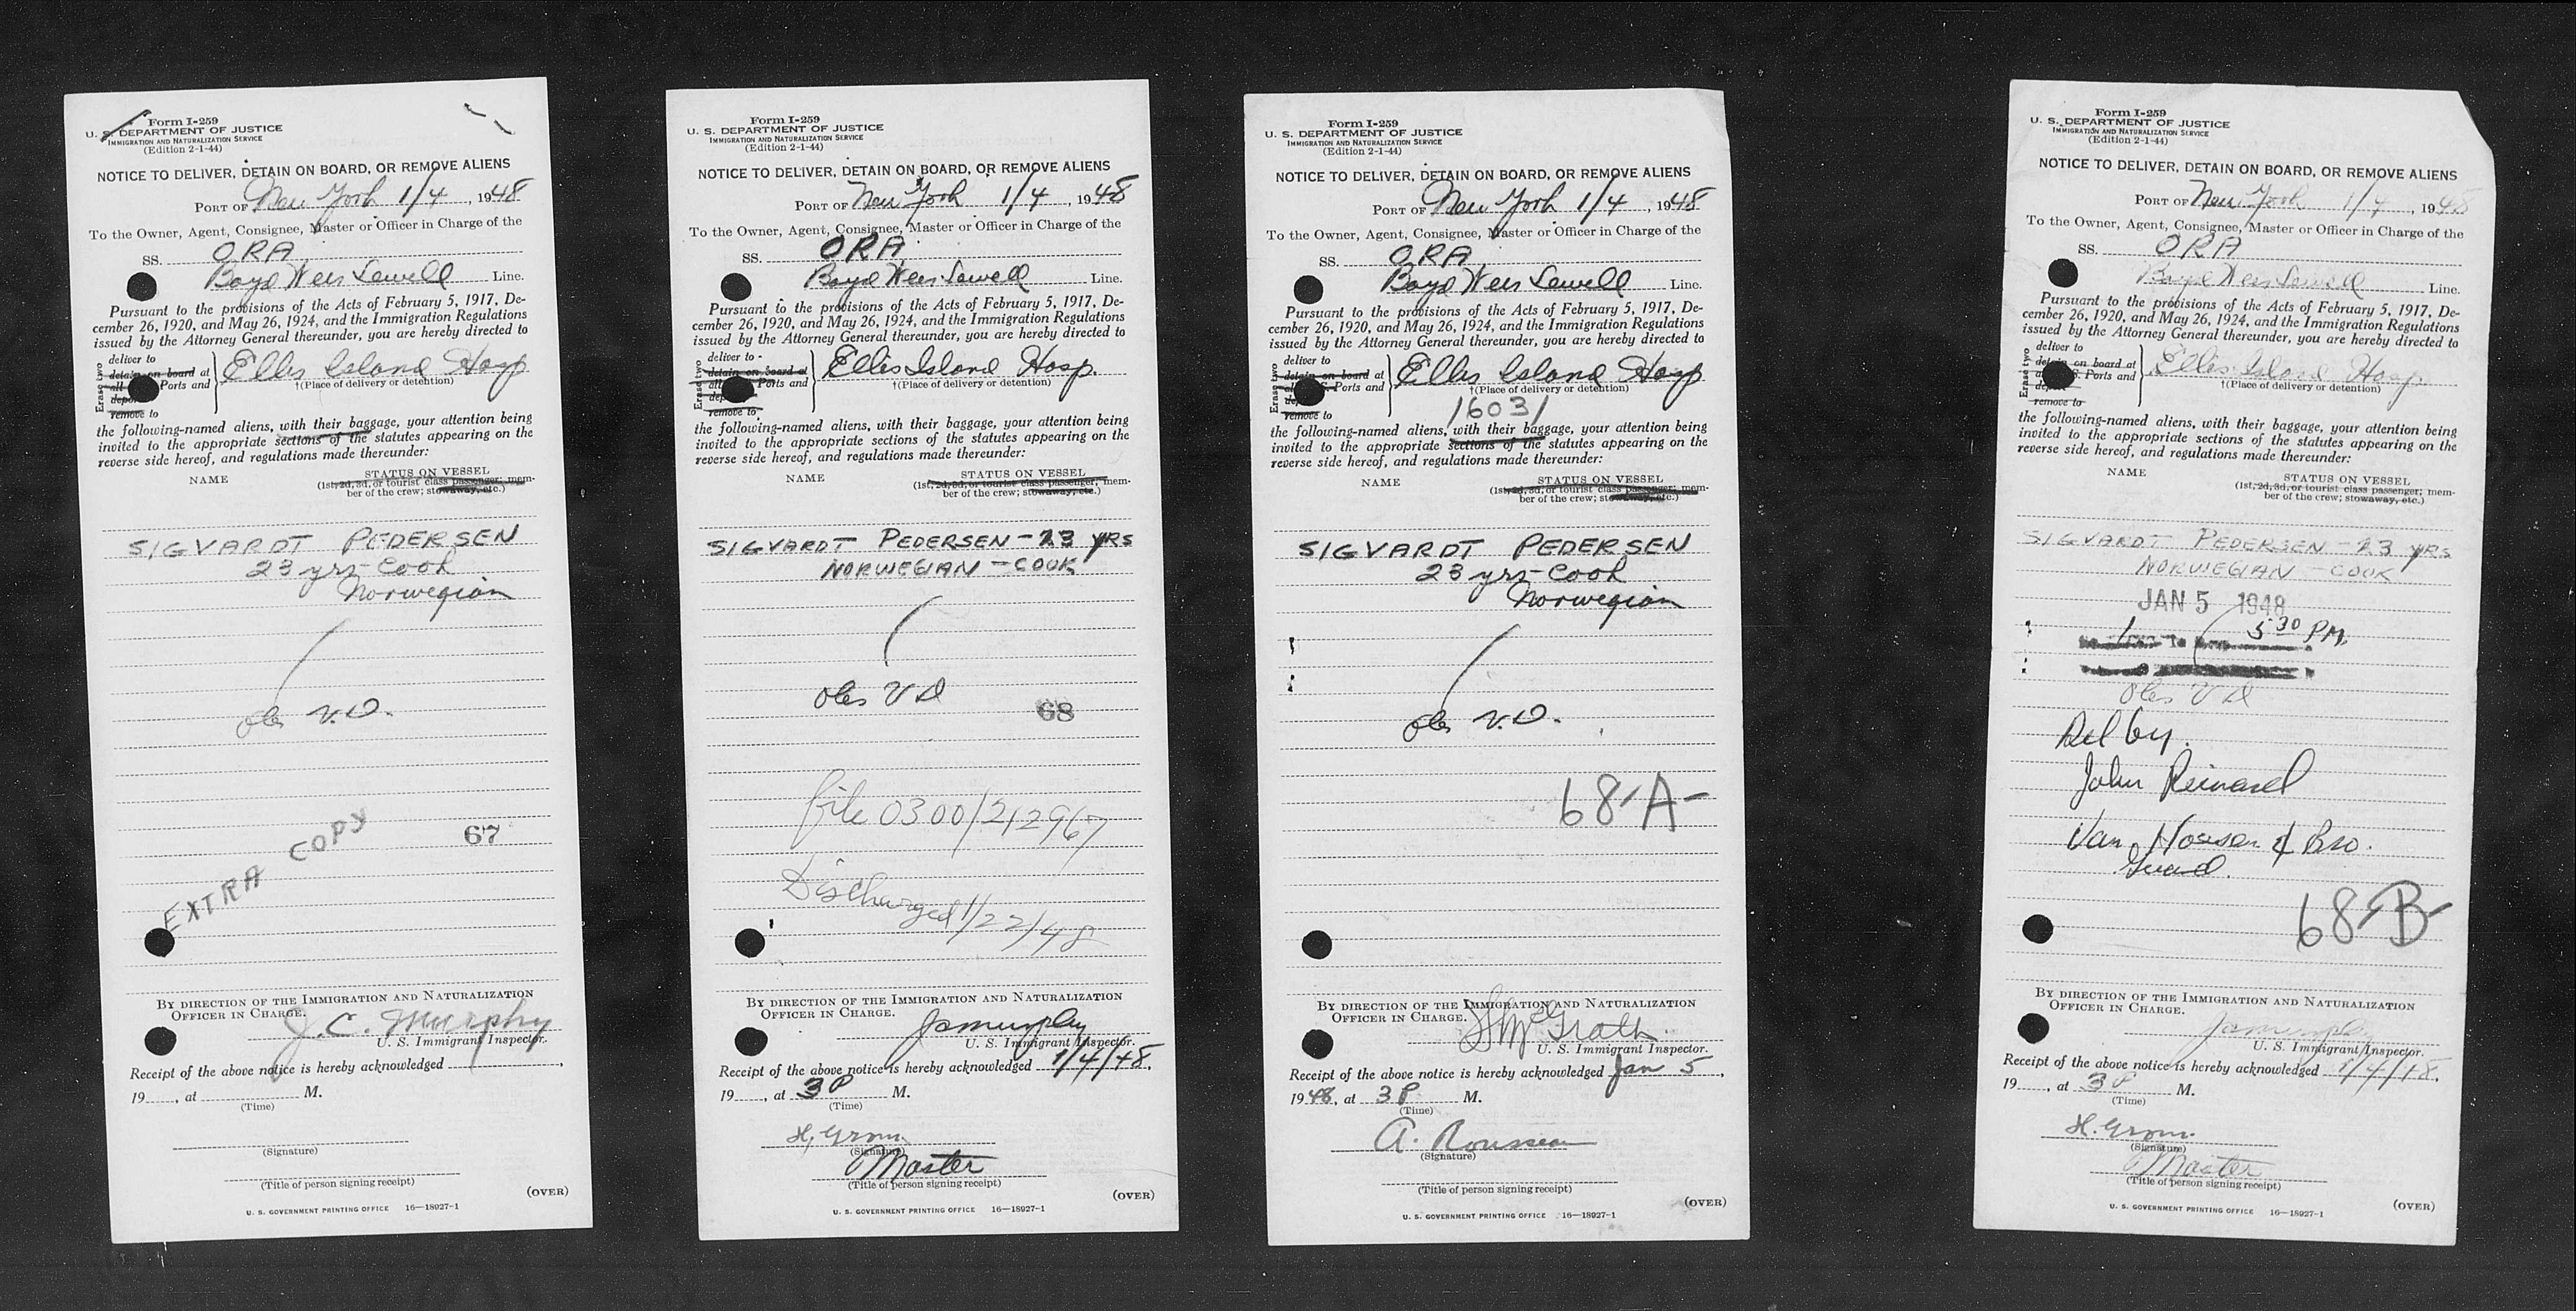 Form I-259
U. S. DEPARTMENT OF JUSTICE
IMMIGRATION AND NATURALIZATION SERVICE
(Edition 2-1-44)
NOTICE TO DELIVER, DETAIN ON BOARD, OR REMOVE ALIENS
PORT OF New York 1/4, 1948
To the Owner, Agent, Consignee, Master or Officer in Charge of the
SS. ORA
Boyd Weir Sewell Line.
Pursuant to the provisions of the Acts of February 5, 1917, De-
cember 26, 1920, and May 26, 1924, and the Immigration Regulations
issued by the Attorney General thereunder, you are hereby directed to
Erase two
deliver to
detain on board at
all Ports and
remove to
Ellis Island Hosp
†(Place of delivery or detention)
the following-named aliens, with their baggage, your attention being
invited to the appropriate sections of the statutes appearing on the
reverse side hereof, and regulations made thereunder:
NAME
STATUS ON VESSEL
(1st, 2d, 3d, or tourist class passenger; mem-
ber of the crew; stowaway, etc.)
SIGVARDT PEDERSEN
23 yrs-Cook
Norwegian
V.D.
EXTRA COPY
67
BY DIRECTION OF THE IMMIGRATION AND NATURALIZATION
OFFICER IN CHARGE.
J. C. Murphy
U. S. Immigrant Inspector.
Receipt of the above notice is hereby acknowledged ,
19 , at M.
(Time)
(Signature)
(Title of person signing receipt)
(OVER)
U. S. GOVERNMENT PRINTING OFFICE 16—18927-1
Form I-259
U. S. DEPARTMENT OF JUSTICE
IMMIGRATION AND NATURALIZATION SERVICE
(Edition 2-1-44)
NOTICE TO DELIVER, DETAIN ON BOARD, OR REMOVE ALIENS
PORT OF New York 1/4, 1948
To the Owner, Agent, Consignee, Master or Officer in Charge of the
SS. ORA
Boyd Weir Sewell Line.
Pursuant to the provisions of the Acts of February 5, 1917, De-
cember 26, 1920, and May 26, 1924, and the Immigration Regulations
issued by the Attorney General thereunder, you are hereby directed to
Erase two
deliver to
detain on board at
all Ports and
remove to
Ellis Island Hosp.
†(Place of delivery or detention)
the following-named aliens, with their baggage, your attention being
invited to the appropriate sections of the statutes appearing on the
reverse side hereof, and regulations made thereunder:
NAME
STATUS ON VESSEL
(1st, 2d, 3d, or tourist class passenger; mem-
ber of the crew; stowaway, etc.)
SIGVARDT PEDERSEN - 23 YRS
NORWEGIAN - COOK
V D
68
file 0300/212967
Discharged 1/22/48
BY DIRECTION OF THE IMMIGRATION AND NATURALIZATION
OFFICER IN CHARGE.
U. S. Immigrant Inspector.
Receipt of the above notice is hereby acknowledged 1/4/48,
19 , at 3 P M.
(Time)
(Signature)
Master
(Title of person signing receipt)
(OVER)
U. S. GOVERNMENT PRINTING OFFICE 16—18927-1
Form I-259
U. S. DEPARTMENT OF JUSTICE
IMMIGRATION AND NATURALIZATION SERVICE
(Edition 2-1-44)
NOTICE TO DELIVER, DETAIN ON BOARD, OR REMOVE ALIENS
PORT OF New York 1/4, 1948
To the Owner, Agent, Consignee, Master or Officer in Charge of the
SS. ORA
Boyd Weir Sewell Line.
Pursuant to the provisions of the Acts of February 5, 1917, De-
cember 26, 1920, and May 26, 1924, and the Immigration Regulations
issued by the Attorney General thereunder, you are hereby directed to
Erase two
deliver to
detain on board at
Ports and
remove to
Ellis Island Hosp
†(Place of delivery or detention)
16031
the following-named aliens, with their baggage, your attention being
invited to the appropriate sections of the statutes appearing on the
reverse side hereof, and regulations made thereunder:
NAME
STATUS ON VESSEL
(1st, 2d, 3d, or tourist class passenger; mem-
ber of the crew; stowaway, etc.)
SIGVARDT PEDERSEN
23 yrs-Cook
Norwegian
V.D.
68-A-
BY DIRECTION OF THE IMMIGRATION AND NATURALIZATION
OFFICER IN CHARGE.
McGrath
U. S. Immigrant Inspector.
Receipt of the above notice is hereby acknowledged Jan 5,
1948, at 3 P M.
(Time)
A. Rousseau
(Signature)
(Title of person signing receipt)
(OVER)
U. S. GOVERNMENT PRINTING OFFICE 16—18927-1
Form I-259
U. S. DEPARTMENT OF JUSTICE
IMMIGRATION AND NATURALIZATION SERVICE
(Edition 2-1-44)
NOTICE TO DELIVER, DETAIN ON BOARD, OR REMOVE ALIENS
PORT OF New York 1/4, 1948
To the Owner, Agent, Consignee, Master or Officer in Charge of the
SS. ORA
Boyd Weir Sewell Line.
Pursuant to the provisions of the Acts of February 5, 1917, De-
cember 26, 1920, and May 26, 1924, and the Immigration Regulations
issued by the Attorney General thereunder, you are hereby directed to
Erase two
deliver to
detain on board at
Ports and
remove to
Ellis Island Hosp.
†(Place of delivery or detention)
the following-named aliens, with their baggage, your attention being
invited to the appropriate sections of the statutes appearing on the
reverse side hereof, and regulations made thereunder:
NAME
STATUS ON VESSEL
(1st, 2d, 3d, or tourist class passenger; mem-
ber of the crew; stowaway, etc.)
SIGVARDT PEDERSEN - 23 YRS
NORWEGIAN - COOK
JAN 5 1948
5 30 PM.
V D
Del by.
John
Van Housen & Bro.
Guard.
68-B-
BY DIRECTION OF THE IMMIGRATION AND NATURALIZATION
OFFICER IN CHARGE.
U. S. Immigrant Inspector.
Receipt of the above notice is hereby acknowledged 1/4/48,
19 , at 3 P M.
(Time)
(Signature)
Master
(Title of person signing receipt)
(OVER)
U. S. GOVERNMENT PRINTING OFFICE 16—18927-1